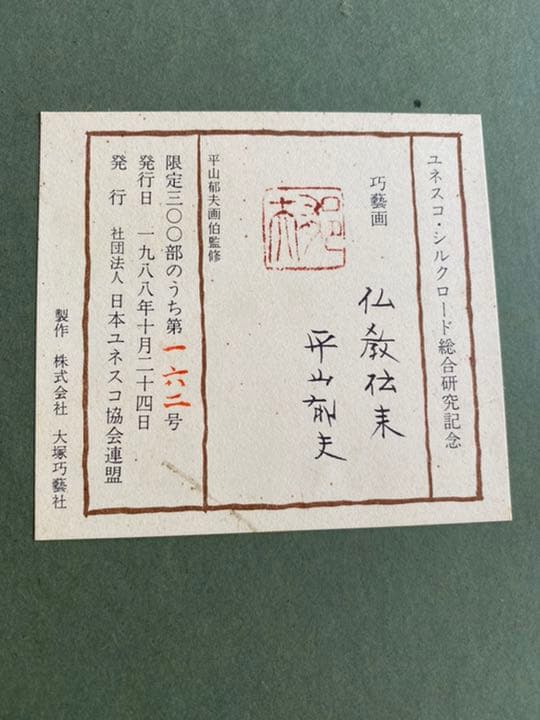 ユネスコ・シルクロード総合研究記念
巧藝画
仏教伝来
平山郁夫
平山郁夫画伯監修
限定三〇〇部のうち第一六二号
発行日 一九八八年十月二十四日
発行 社団法人 日本ユネスコ協会連盟
製作 株式会社 大塚巧藝社